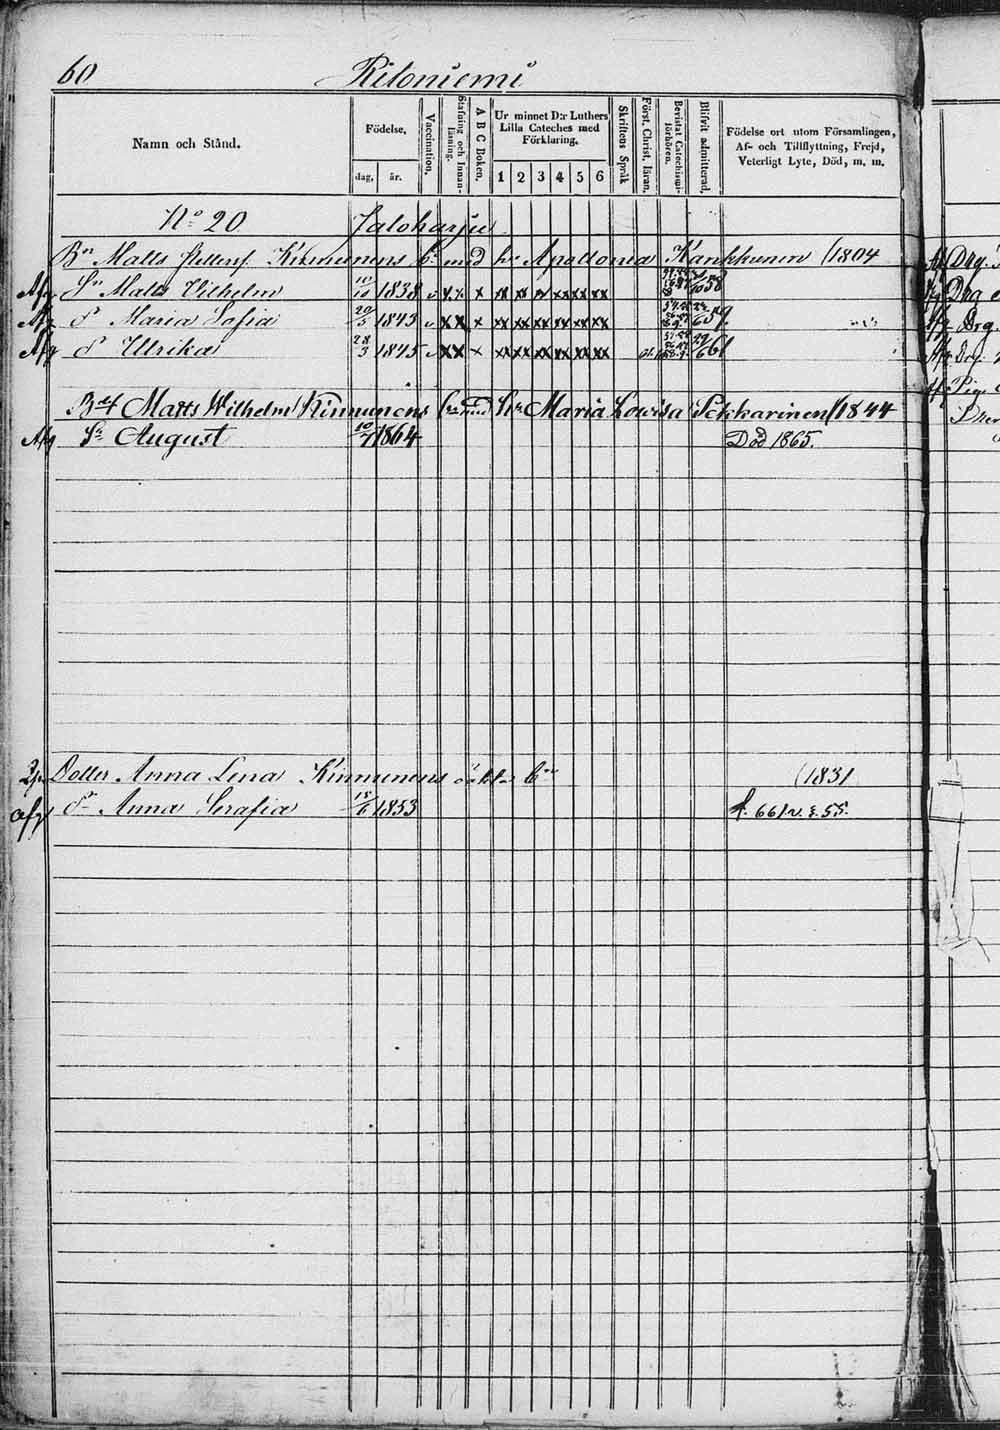 60 Ritoniemi
Namn och Stånd.
Födelse,
dag, år.
Vaccination.
Stafning och Innanläsning.
A B C Boken.
Ur minnet D:r Luthers
Lilla Cateches med
Förklaring.
1 2 3 4 5 6
Skriftens Språk
Först. Christ. läran.
Bevistat Catechismiförhören.
Blifvit admitterad.
Födelse ort utom Församlingen,
Af- och Tillflyttning, Frejd,
Veterligt Lyte, Död, m. m.
No 20 Jaloharju
Bn Matts Kinnunens med hu Apollonia Kankkunen (1804
Afg Sn Matts Vilhelm 10/10 1838 v x x x xx xx x xx xx xx 58
Afg d Maria Sofia 20/5 1843 v x x x xx xx xx xx xx xx 59
Afg d Ulrika 28/3 1845 v x x x xx xx xx xx xx xx 61
Matts Wilhelm Kinnunens med Hu Maria Lowisa Sekkarinen (1844
Afg Sn August 10/7 1864 Död 1865.
Dotter Anna Lena Kinnunens oäkta bn (1831
afg dr Anna Serafia 15/6 1853 f. 661 v. s. 55.